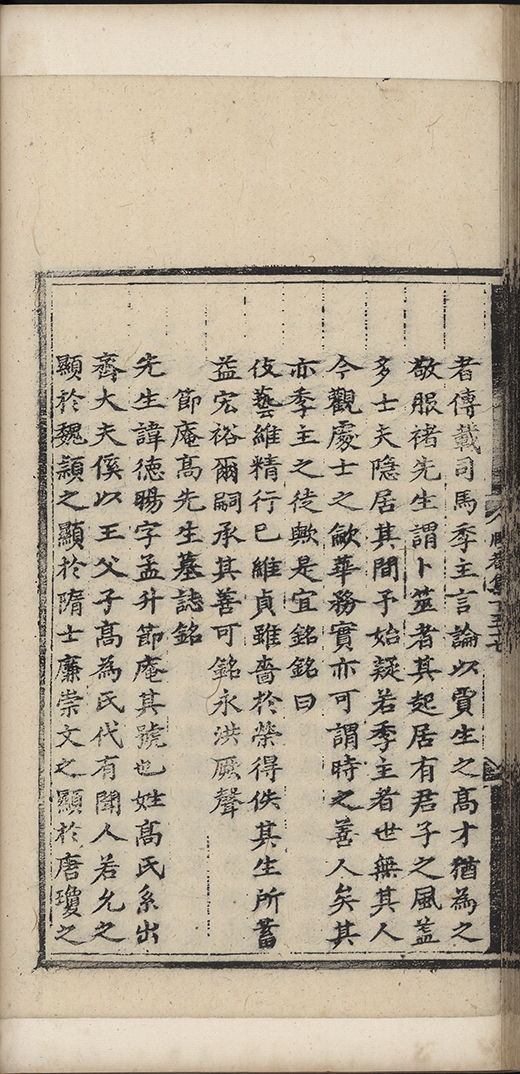 者傳載司馬季主言論以賈生之髙才猶為之
敬服禇先生謂卜筮者其起居有君子之風盖
多士夫隐居其間予始疑若季主者世無其人
今觀處士之歛華務實亦可謂時之善人矣其
亦季主之徒歟是宜銘銘曰
伎藝維精行已維貞雖嗇於榮得佚其生所蓄
益宏裕爾嗣承其善可銘永洪厥聲
節庵髙先生墓誌銘
先生諱徳暘字孟升節庵其號也姓髙氏系出
齊大夫傒以王父子髙為氏代有聞人若允之
顯於魏熲之顯於隋士廉崇文之顯於唐瓊之